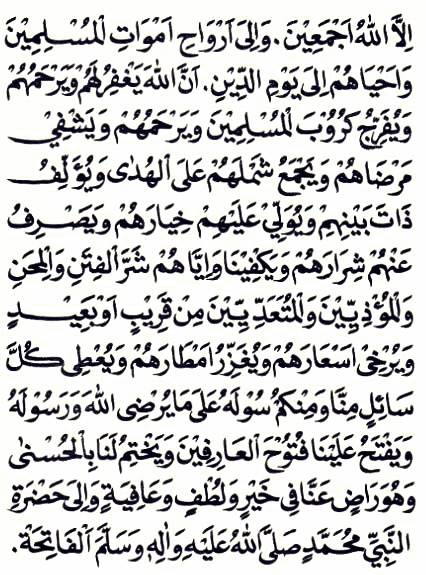 اِلَّا اللهُ اَجْمَعِيْنَ. وَاِلَى اَرْوَاحِ اَمْوَاتِ الْمُسْلِمِيْنَ
وَاَحْيَاهُمْ اِلَى يَوْمِ الدِّيْنِ. اَنَّ اللهَ يَغْفِرُ لَهُمْ وَيَرْحَمُهُمْ
وَيُفَرِّجُ كُرُوْبَ الْمُسْلِمِيْنَ وَيَرْحَمُهُمْ وَيَشْفِيْ
مَرْضَاهُمْ وَيَجْمَعُ شَمْلَهُمْ عَلَى الْهُدَى وَيُؤَلِّفُ
ذَاتَ بَيْنِهِمْ وَيُوَلِّيْ عَلَيْهِمْ خِيَارَهُمْ وَيَصْرِفُ
عَنْهُمْ شِرَارَهُمْ وَيَكْفِيْنَا وَاِيَّاهُمْ شَرَّ الْفِتَنِ وَالْمِحَنِ
وَالْمُؤْذِيِّيْنَ وَالْمُتَعَدِّيِّيْنَ مِنْ قَرِيْبٍ اَوْ بَعِيْدٍ
وَيُرْخِيْ اَسْعَارَهُمْ وَيُغَزِّرُ اَمْطَارَهُمْ وَيُعْطِي كُلَّ
سَائِلٍ مِنَّا وَمِنْكُمْ سُوْلَهُ عَلَى مَا يُرْضِى اللهَ وَرَسُوْلَهُ
وَيَفْتَحُ عَلَيْنَا فُتُوْحَ الْعَارِفِيْنَ وَيَخْتِمُ لَنَا بِالْحُسْنَى
وَهُوَ رَاضٍ عَنَّا فِي خَيْرٍ وَلُطْفٍ وَعَافِيَةٍ وَاِلَى حَضْرَةِ
النَّبِيِّ مُحَمَّدٍ صَلَّى اللهُ عَلَيْهِ وَاٰلِهِ وَسَلَّمَ الْفَاتِحَةْ.